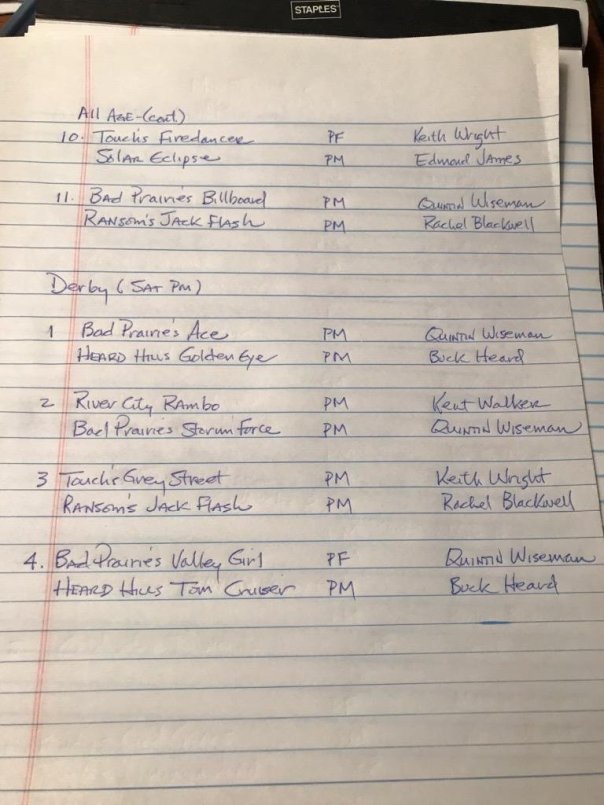 STAPLES
All AGE-(cont)
10. Touch's Firedancer PF Keith Wright
Solar Eclipse PM Edmond James
11. Bad Prairie's Billboard PM Quintin Wiseman
RANSom's JACK FlASh PM Rachel Blackwell
Derby (SAT PM)
1 Bad Prairie's Ace PM Quintin Wiseman
HEARD Hills Golden Eye PM Buck Heard
2 River City RAmbo PM Kent Walker
Bad Prairies Storm Force PM Quintin Wiseman
3 Touch's Grey Street PM Keith Wright
RANSom's JACK FlASh PM Rachel Blackwell
4. Bad Prairie's Valley Girl PF Quintin Wiseman
HEARD Hills Tom Cruiser PM Buck Heard